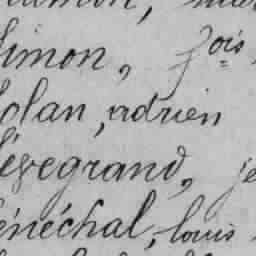 Simon, fois
olan, adrien
Lévegrand, je
énéchal, louis